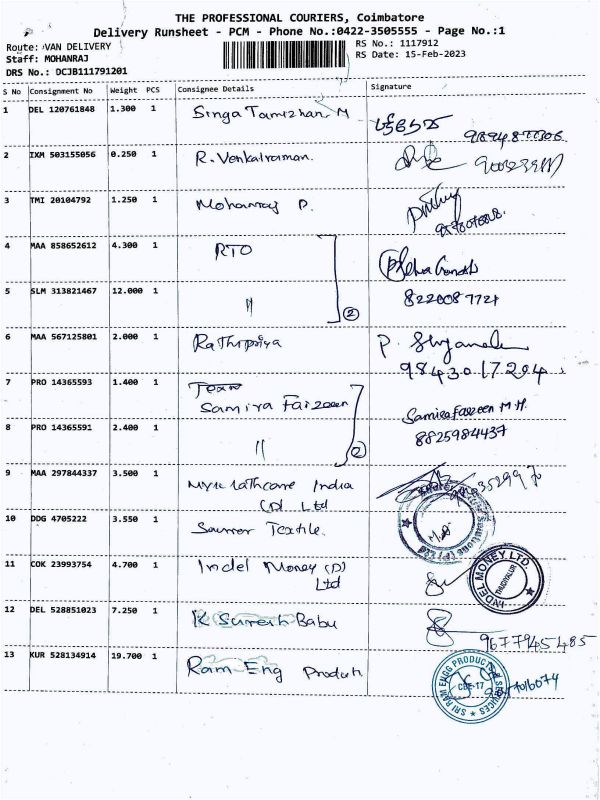 THE PROFESSIONAL COURIERS, Coimbatore
Delivery Runsheet - PCM - Phone No.:0422-3505555 - Page No.:1
Route: VAN DELIVERY
RS No.: 1117912
Staff: MOHANRAJ
RS Date: 15-Feb-2023
DRS No.: DCJB111791201
S No Consignment No Weight PCS Consignee Details Signature
1 DEL 120761848 1.300 1 Singa Tamizhan M
2 IXM 503155056 0.250 1 R. Venkatraman.
3 TMI 20104792 1.250 1 Mohanraj P.
4 MAA 858652612 4.300 1 RTO
5 SLM 313821467 12.000 1 " 2 8220087721
6 MAA 567125801 2.000 1 Rathipriya P. Shyamala
9843017204
7 PRO 14365593 1.400 1 Samira Faizeen Samira Fazeen M.H.
8 PRO 14365591 2.400 1 " 2 8825984437
9 MAA 297844337 3.500 1 India
(P) Ltd
10 DDG 4705222 3.550 1 Textile.
11 COK 23993754 4.700 1 Indel Money (P)
Ltd
INDEL MONEY LTD.
THUDIYALUR
12 DEL 528851023 7.250 1 K Suresh Babu
9677945485
13 KUR 528134914 19.700 1 Ram Eng Produts
SRI RAM ENGG PRODUCTS & SERVICES
CBE-17